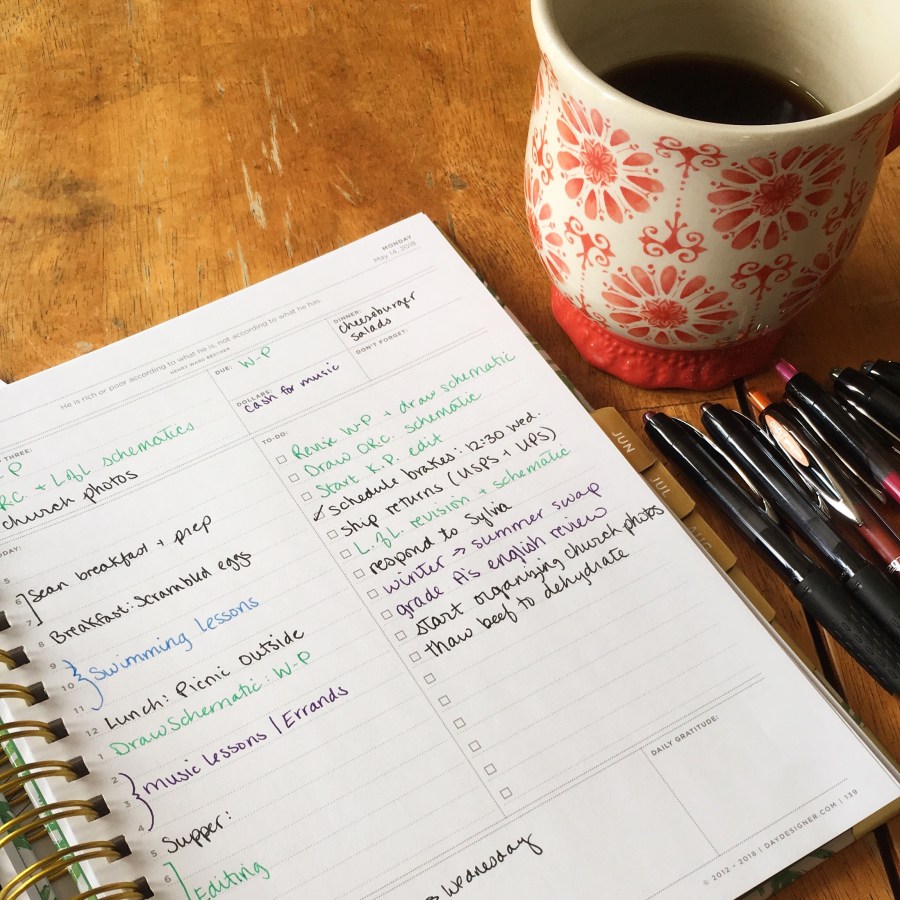 MONDAY
May 14, 2018
He is rich or poor according to what he is, not according to what he has.
HENRY WARD BEECHER
THREE:
P
R.C. + L.of.L schematics
church photos
DUE: W-P
DOLLARS:
cash for music
DINNER:
cheeseburger
salads
DON'T FORGET:
TO-DO:
Revise W-P + draw schematic
Draw O.R.C. schematic
Start K.P. edit
schedule brakes: 12:30 wed.
ship returns (USPS + UPS)
L.of.L revision + schematic
respond to Sylvia
winter → summer swap
grade A's english review
start organizing church photos
thaw beef to dehydrate
ODAY:
5
6 Sean breakfast + prep
7
8 Breakfast: Scrambled eggs
9
10 Swimming lessons
11
12 Lunch: Picnic outside
1 Draw Schematic: W-P
2
3 music lessons / Errands
4
5 Supper:
6 Editing
Wednesday
DAILY GRATITUDE:
© 2012 - 2018 | DAYDESIGNER.COM | 139
JUN
JUL
AUG